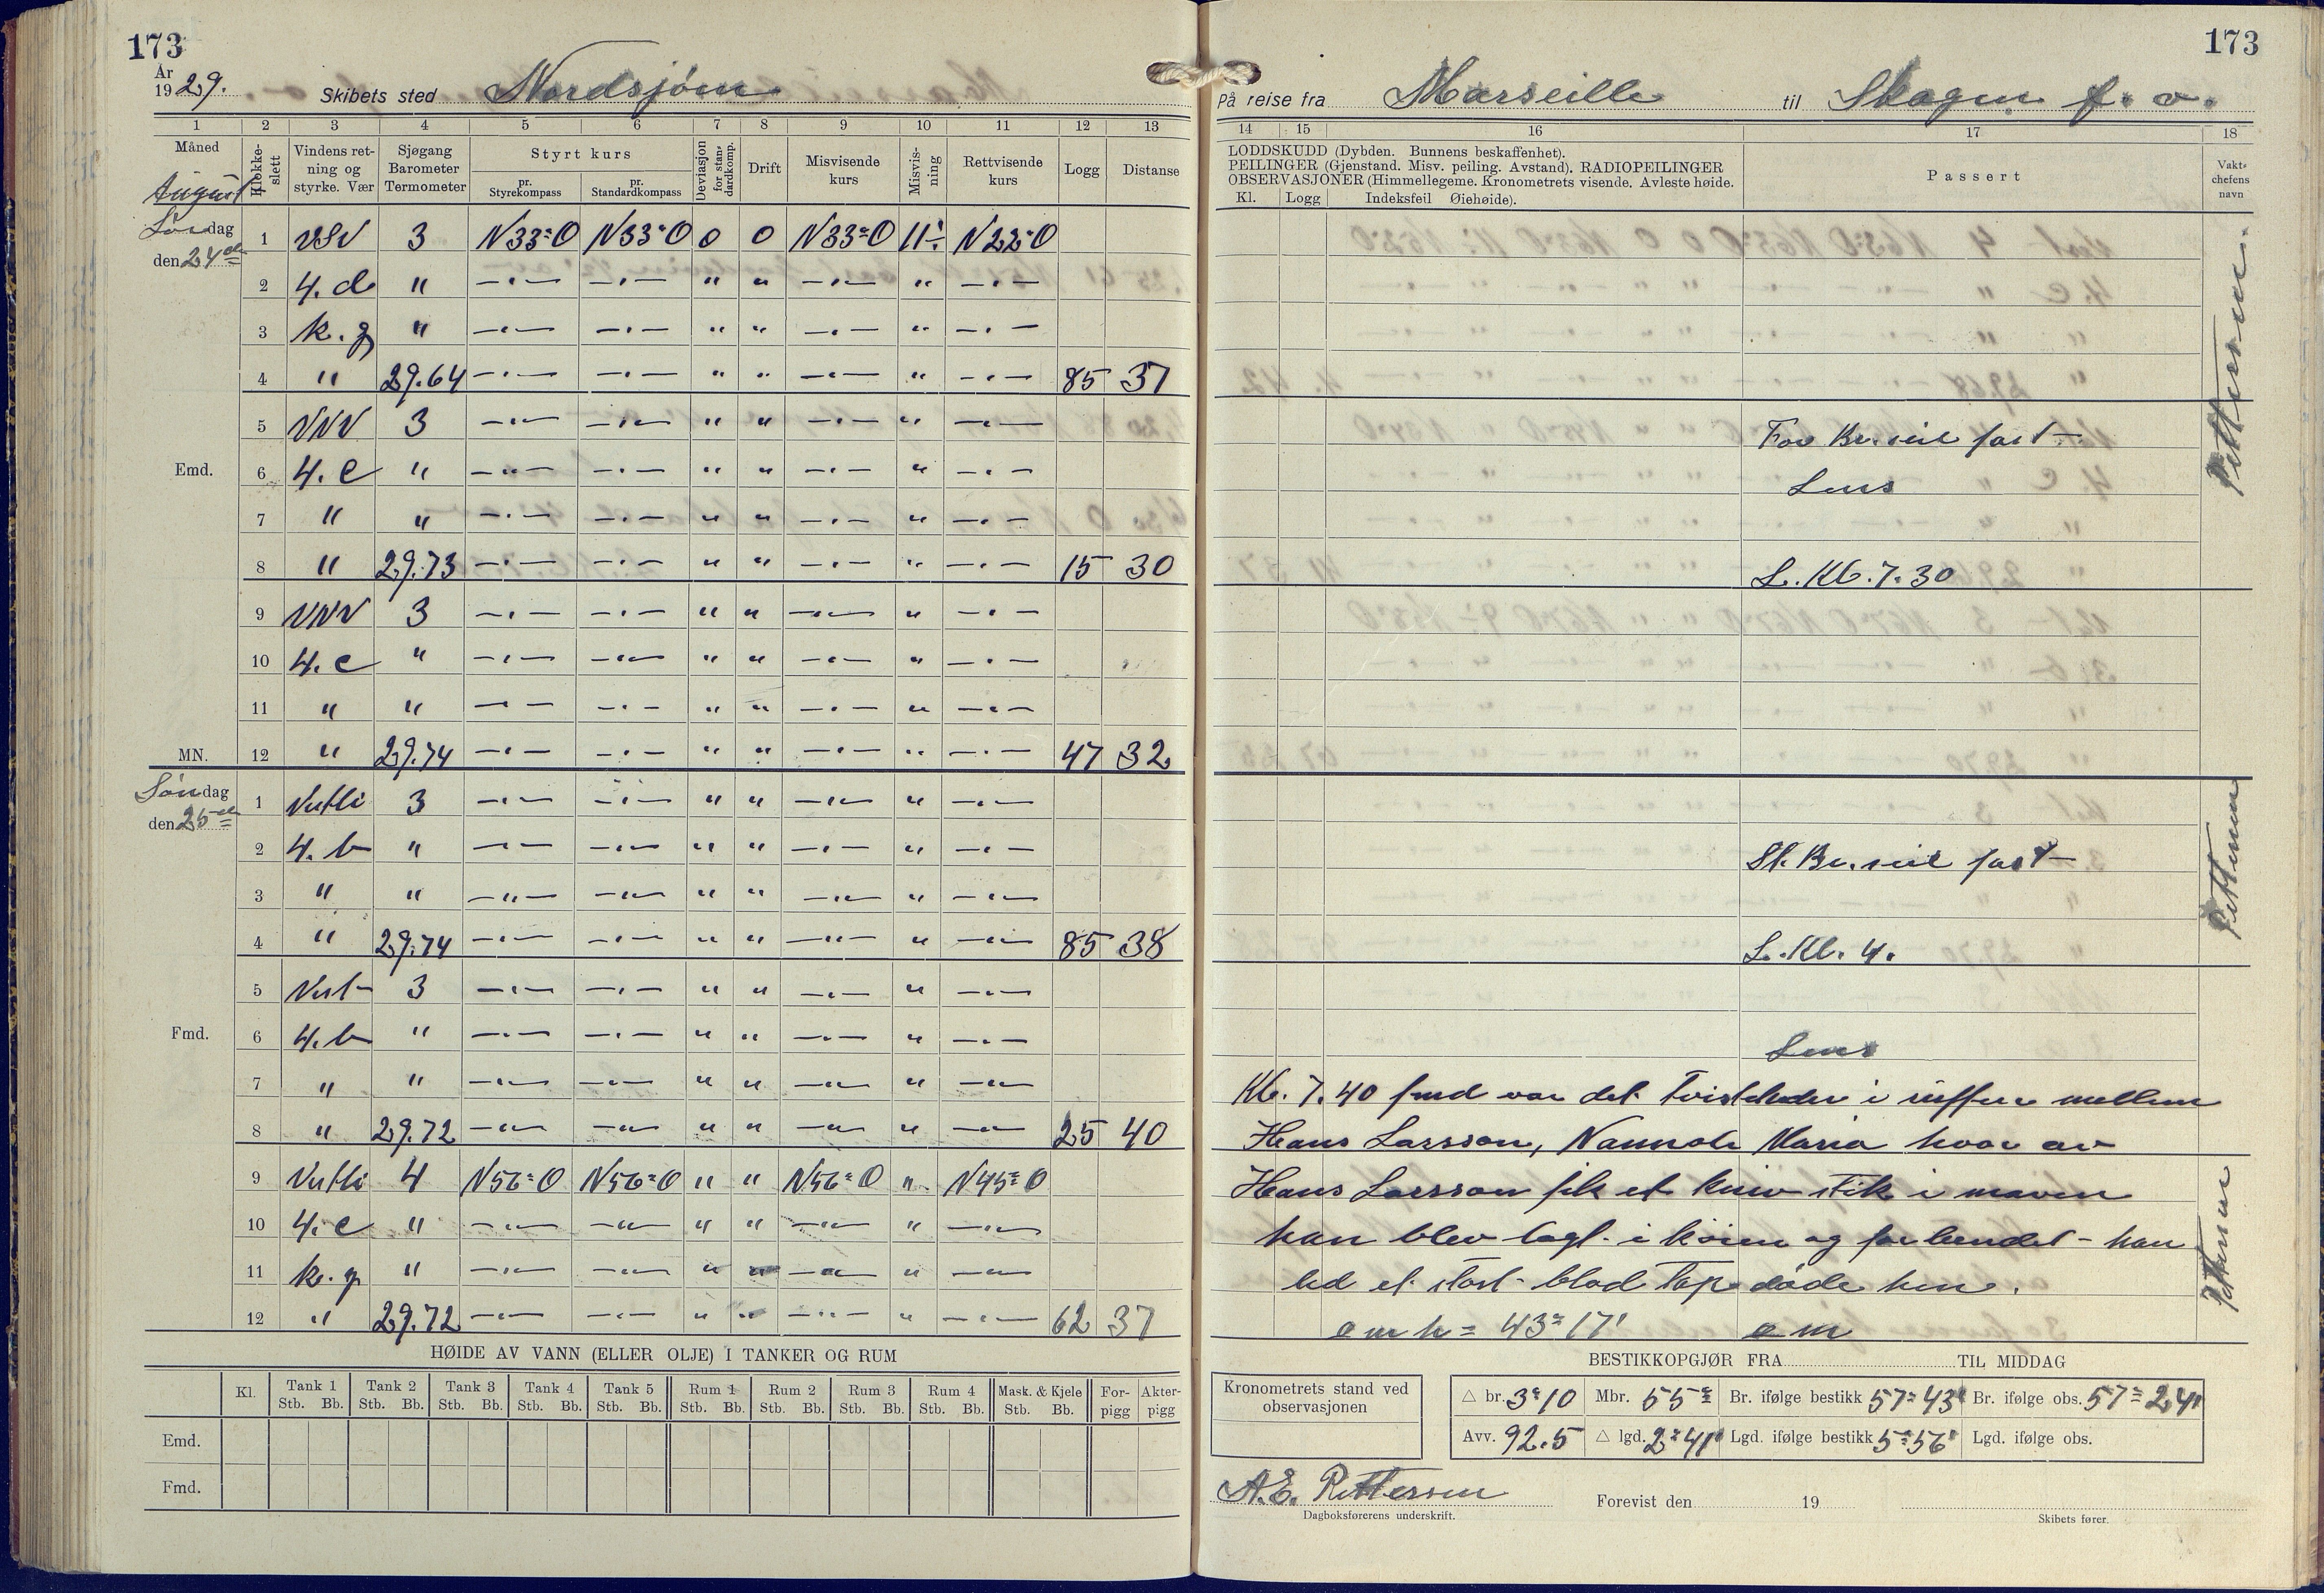 173
År
1929. Skibets sted Nordsjøen
1 2 3 4 5 6 7 8 9 10 11 12 13
Måned August
Klokkeslett
Vindens retning og styrke. Vær
Sjøgang Barometer Termometer
Styrt kurs
pr. Styrekompass
pr. Standardkompass
Deviasjon for standardkomp.
Drift
Misvisende kurs
Misvisning
Rettvisende kurs
Logg
Distanse
Lørdag 1 VSV 3 N33°O N33°O 0 0 N33°O 11÷ N22°O
den 24de
2 4. d " –"– –"– " " –"– " –"–
3 k. g " –"– –"– " " –"– " –"–
4 " 29.64 –"– –"– " " –"– " –"– 85 37
5 VNV 3 –"– –"– " " –"– " –"–
Emd. 6 4. c " –"– –"– " " –"– " –"–
7 " " –"– –"– " " –"– " –"–
8 " 29.73 –"– –"– " " –"– " –"– 15 30
9 VNV 3 –"– –"– " " –"– " –"–
10 4. c " –"– –"– " " –"– " –"–
11 " " –"– –"– " " –"– " –"–
MN. 12 " 29.74 –"– –"– " " –"– " –"– 47 32
Søndag 1 Vestli 3 –"– –"– " " –"– " –"–
den 25de
2 4. b " –"– –"– " " –"– " –"–
3 " " –"– –"– " " –"– " –"–
4 " 29.74 –"– –"– " " –"– " –"– 85 38
5 Vest 3 –"– –"– " " –"– " –"–
Fmd. 6 4. b " –"– –"– " " –"– " –"–
7 " " –"– –"– " " –"– " –"–
8 " 29.72 –"– –"– " " –"– " –"– 25 40
9 Vestli 4 N56°O N56°O " " N56°O " N45°O
10 4. c " –"– –"– " " –"– " –"–
11 k. g " –"– –"– " " –"– " –"–
12 " 29.72 –"– –"– " " –"– " –"– 62 37
HØIDE AV VANN (ELLER OLJE) I TANKER OG RUM
Kl. Tank 1 Tank 2 Tank 3 Tank 4 Tank 5 Rum 1 Rum 2 Rum 3 Rum 4 Mask. & Kjele Forpigg Akterpigg
Stb. Bb. Stb. Bb. Stb. Bb. Stb. Bb. Stb. Bb. Stb. Bb. Stb. Bb. Stb. Bb. Stb. Bb. Stb. Bb.
Emd.
Fmd.
173
På reise fra Marseille til Skagen f. o.
14 15 16 17 18
LODDSKUDD (Dybden. Bunnens beskaffenhet).
PEILINGER (Gjenstand. Misv. peiling. Avstand). RADIOPEILINGER
OBSERVASJONER (Himmellegeme. Kronometrets visende. Avleste høide.
Kl. Logg Indeksfeil Øiehøide).
Passert
Vaktchefens navn
For Br. seil fast
Lens
L. Kl. 7.30
Pettersen
St. Br. seil fast
L. Kl. 4.
Pettersen
Lens
Kl. 7.40 fmd var det i ruffen mellem
Hans Larsson, Maria hvor av
Hans Larsson fik et kniv stik i maven
han blev lagt i køien og forbundet - han
led et stort blod tap døde hen.
Pettersen
o m h = 43° 17' o m
BESTIKKOPGJØR FRA TIL MIDDAG
Kronometrets stand ved observasjonen
△ br. 3°10 Mbr. 55° Br. ifølge bestikk 57°43' Br. ifølge obs. 57°24'
Avv. 92.5 △ lgd. 2°41' Lgd. ifølge bestikk 5°56' Lgd. ifølge obs.
A. E. Pettersen
Dagboksførerens underskrift.
Forevist den 19
Skibets fører.